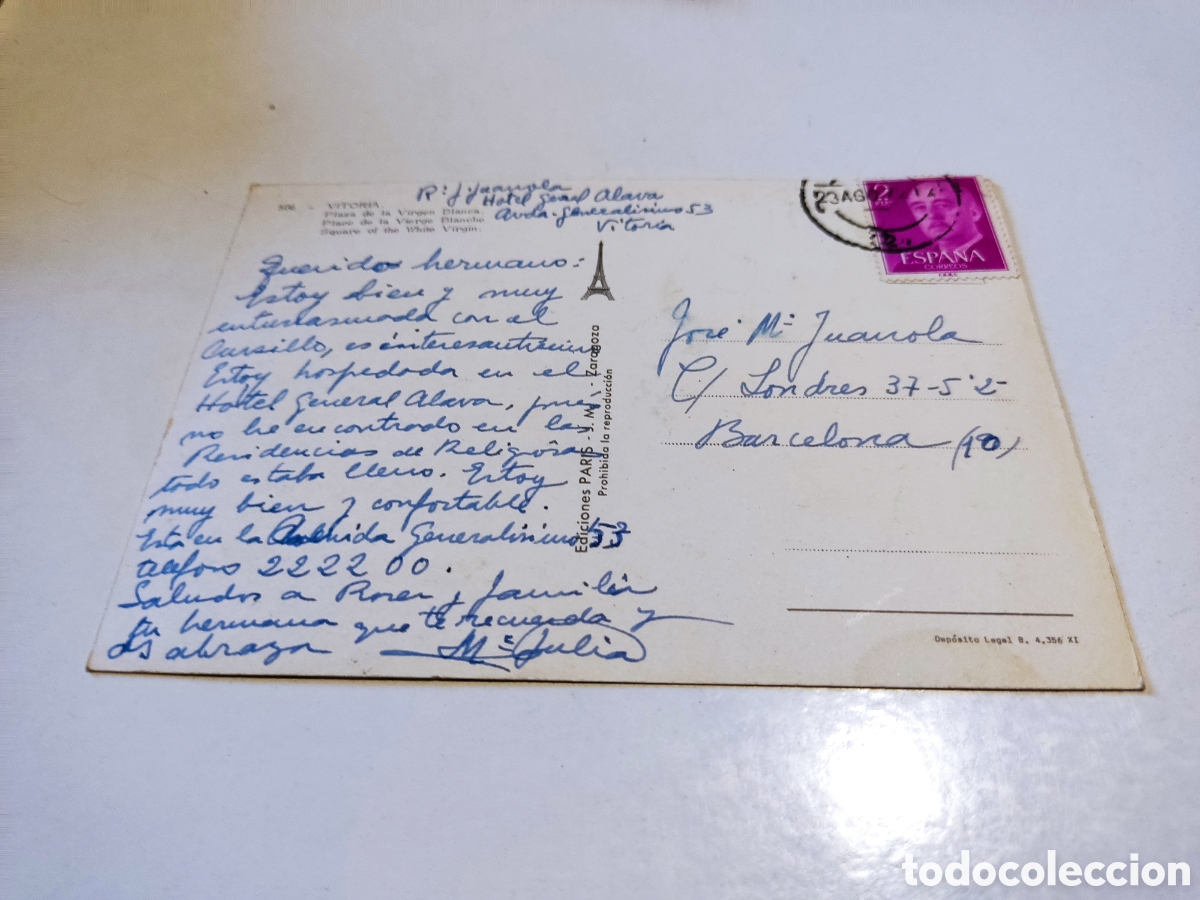 R: J. Juanola
Hotel Genal Alava
Avda. Generalísimo 53
Vitoria
506. - VITORIA.
Plaza de la Virgen Blanca.
Place de la Vierge Blanche
Square of the White Virgin.
Querido hermano:
Estoy bien y muy
entusiasmada con el
Cursillo, es interesantísimo
Estoy hospedada en el
Hostel General Alava, pues
no he encontrado en las
Residencias de Religiosas
todo estaba lleno. Estoy
muy bien y confortable.
Esta en la Avenida Generalisimo 53
222200.
Saludos a Roser y familia
tu hermana que te recuerda y
os abraza Mª Julia
Ediciones PARIS - J. M. - Zaragoza
Prohibida la reproducción
23 AG
2
PTAS
ESPAÑA
CORREOS
José Mª Juanola
C/ Londres 37-5º2ª
Barcelona (10)
Depósito Legal B. 4.356 XI
todocoleccion